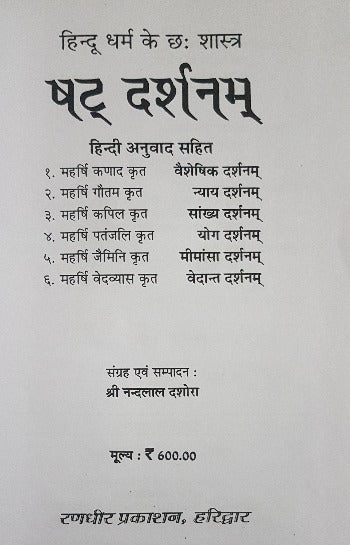 हिन्दू धर्म के छः शास्त्र
षट् दर्शनम्
हिन्दी अनुवाद सहित
१. महर्षि कणाद कृत वैशेषिक दर्शनम्
२. महर्षि गौतम कृत न्याय दर्शनम्
३. महर्षि कपिल कृत सांख्य दर्शनम्
४. महर्षि पतंजलि कृत योग दर्शनम्
५. महर्षि जैमिनि कृत मीमांसा दर्शनम्
६. महर्षि वेदव्यास कृत वेदान्त दर्शनम्
संग्रह एवं सम्पादन :
श्री नन्दलाल दशोरा
मूल्य : ₹ 600.00
रणधीर प्रकाशन, हरिद्वार